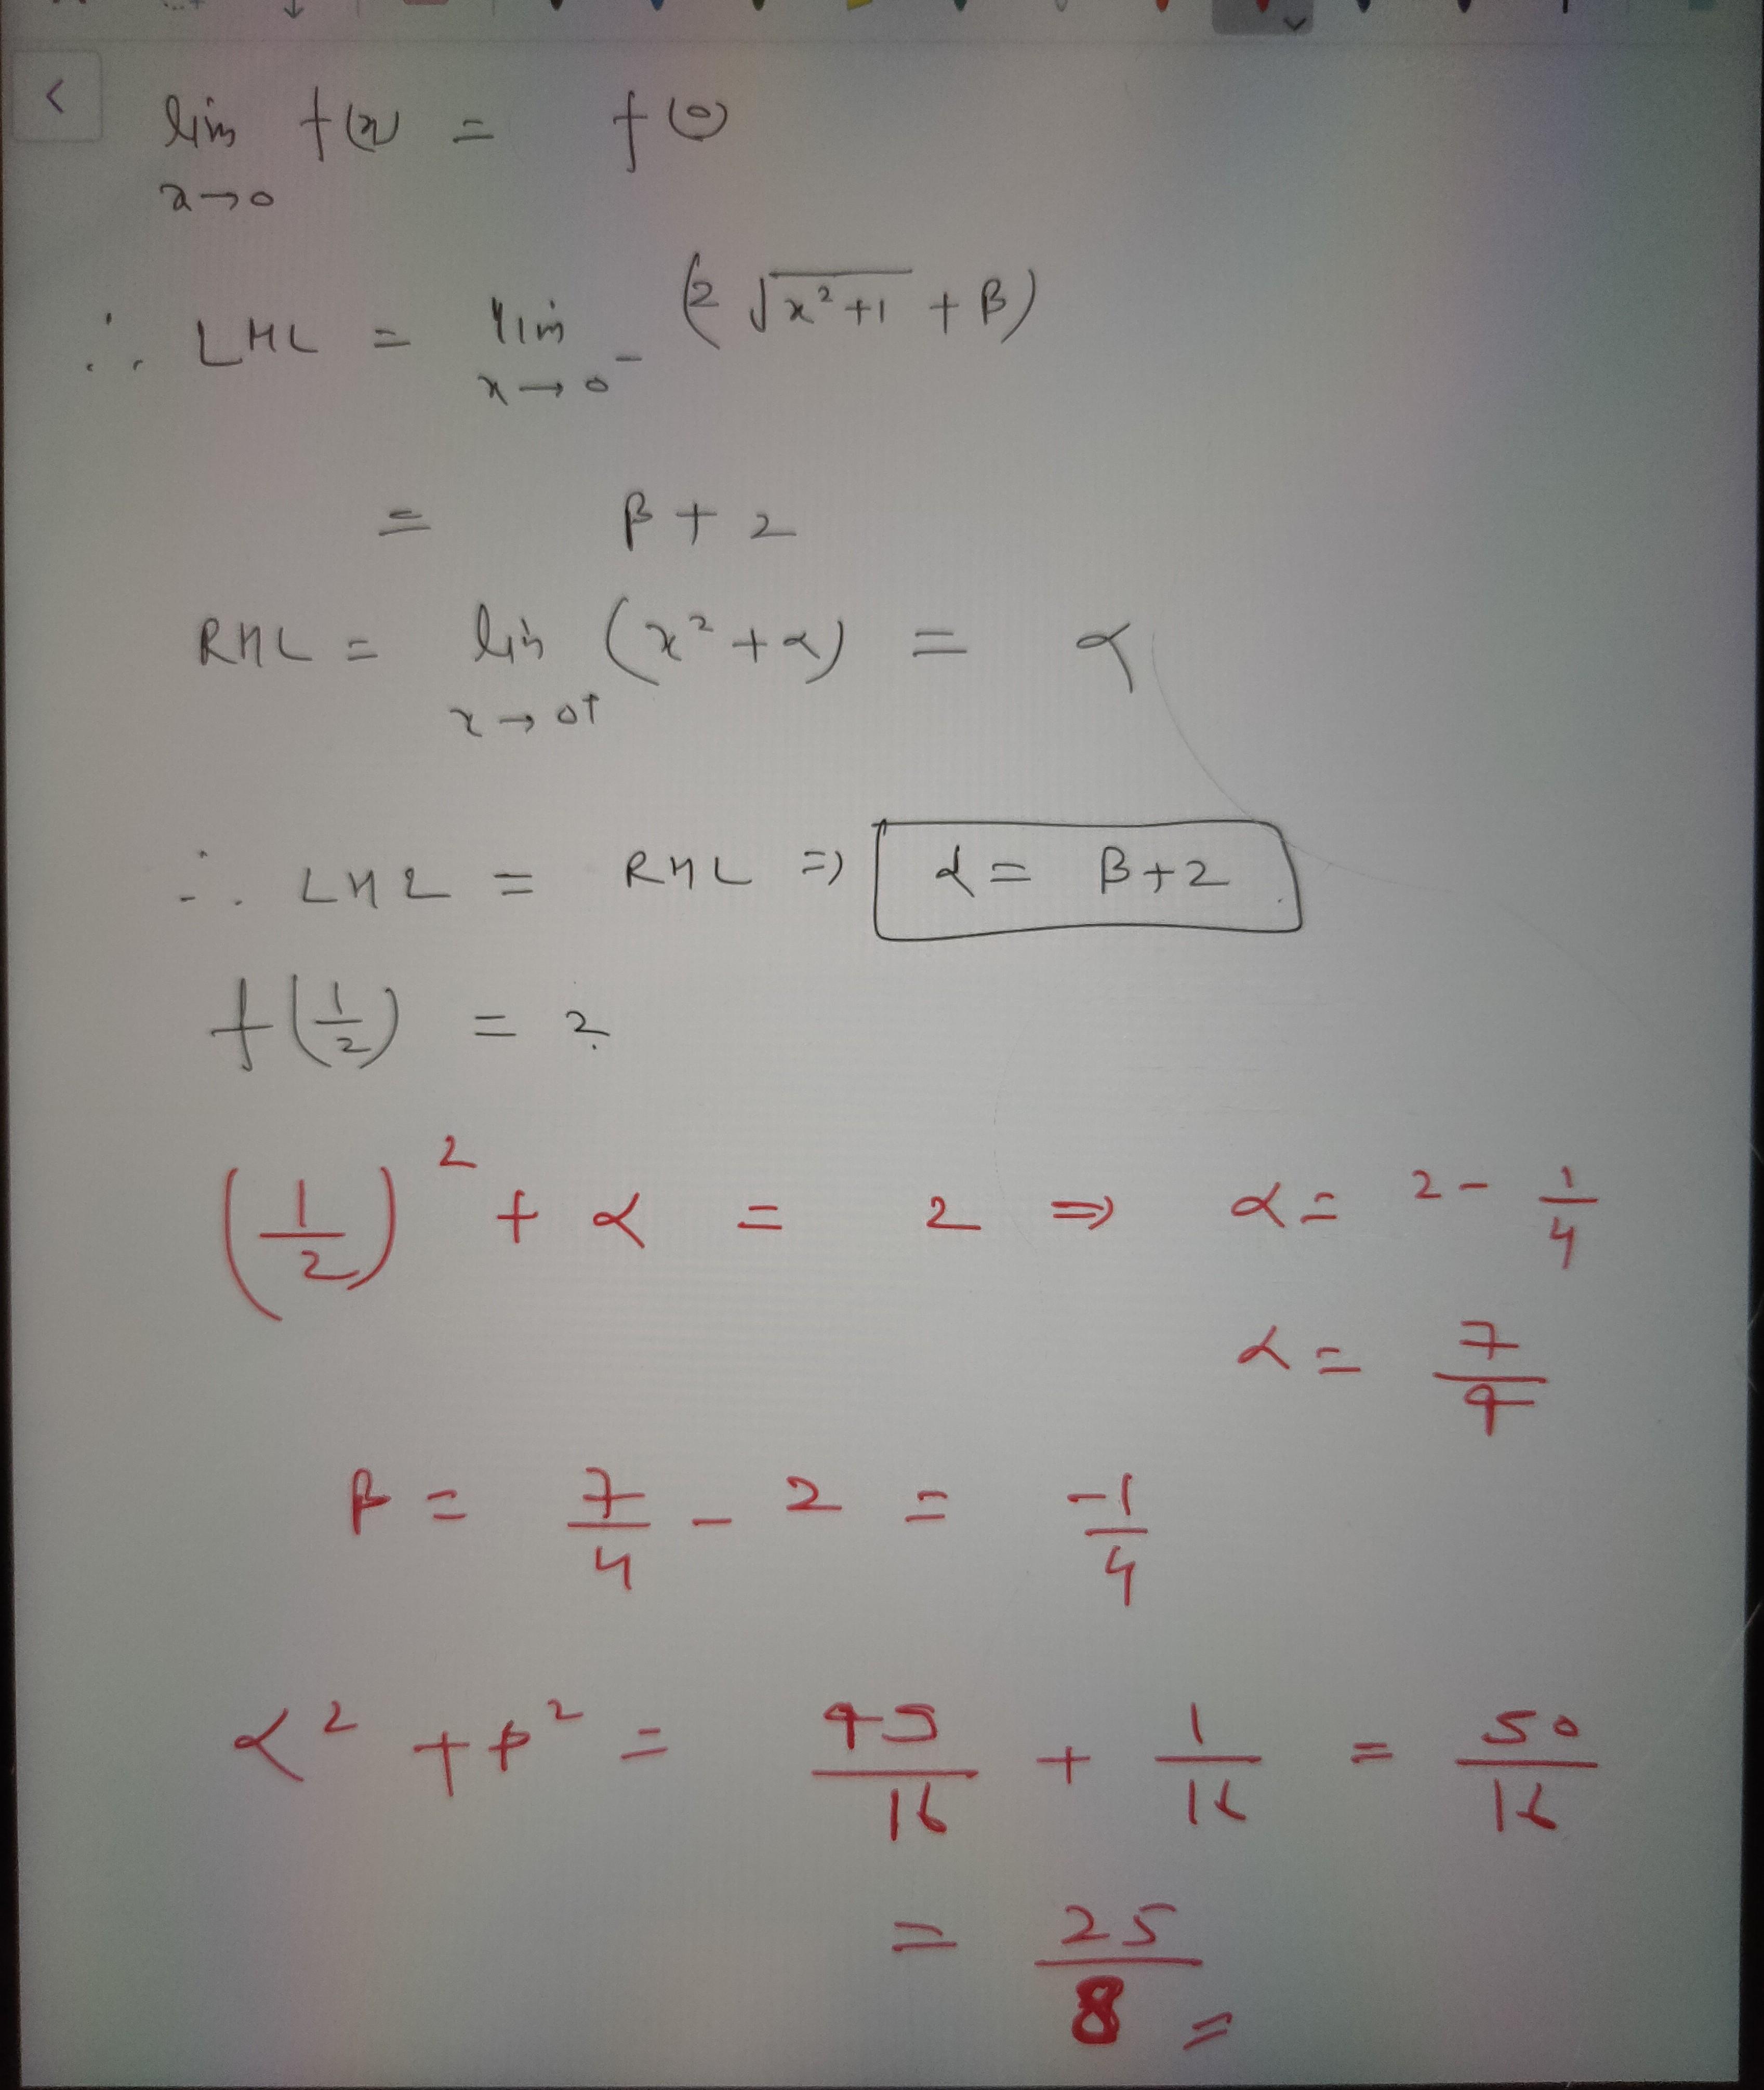 lim f(x) = f(0)
x→0
∴ LHL = lim (2 √x²+1 + β)
x→0⁻
= β + 2
RHL = lim (x² + α) = α
x→0+
∴ LHL = RHL ⇒ α = β+2
f(1/2) = 2
(1/2)² + α = 2 ⇒ α = 2 - 1/4
α = 7/4
β = 7/4 - 2 = -1/4
α² + β² = 49/16 + 1/16 = 50/16
= 25/8 =